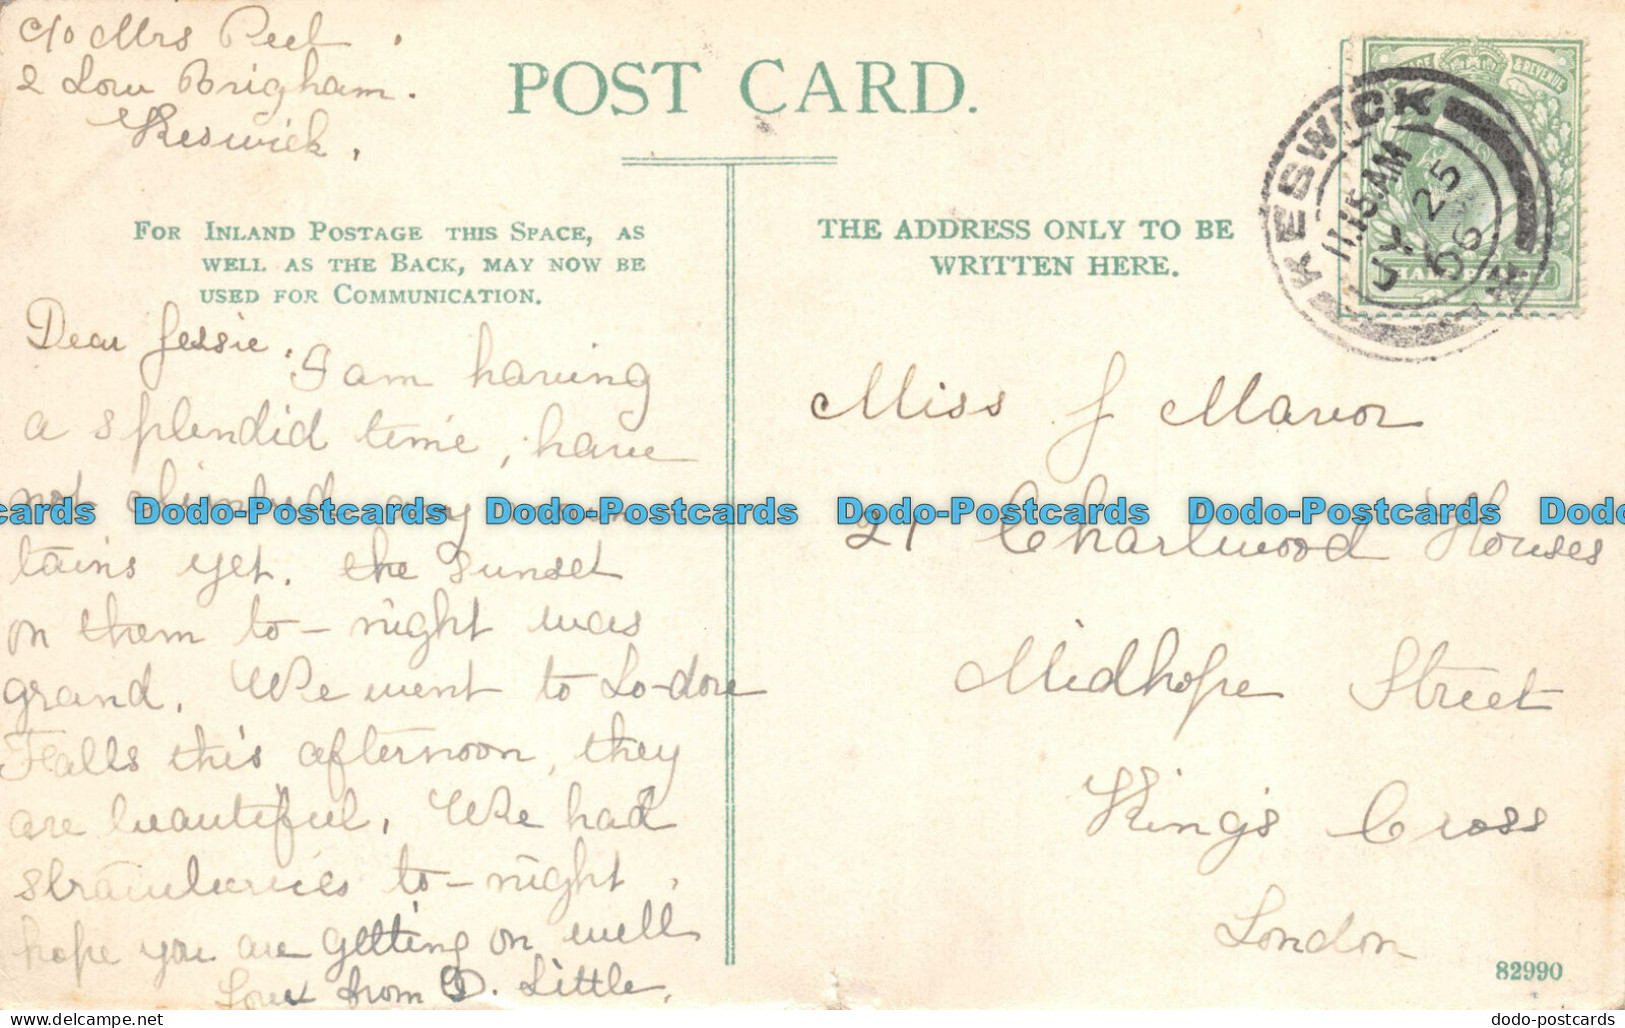 c/o Mrs Peel.
2 Low Brigham.
Keswick.
POST CARD.
FOR INLAND POSTAGE THIS SPACE, AS
WELL AS THE BACK, MAY NOW BE
USED FOR COMMUNICATION.
Dear Jessie,
I am having
a splendid time, have
not climbed any moun
tains yet. the sunset
on them to-night was
grand. We went to Lo-dore
Falls this afternoon, they
are beautiful. We had
strawberries to-night,
hope you are getting on well
Love from D. Little.
THE ADDRESS ONLY TO BE
WRITTEN HERE.
KESWICK
11.15AM
JY 25
06
POSTAGE & REVENUE
HALFPENNY
Miss J Mavor
21 Charlwood Houses
Midhope Street
King's Cross
London
82990
cards Dodo-Postcards Dodo-Postcards Dodo-Postcards Dodo-Postcards Dodo
dodo-postcards
dodo-postcards.com